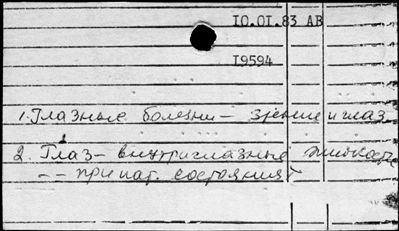 10.01.83 АВ
19594
1. Глазные болезни – зрение и глаз
2. Глаз – внутриглазные жидкости
– – при пат. состояниях